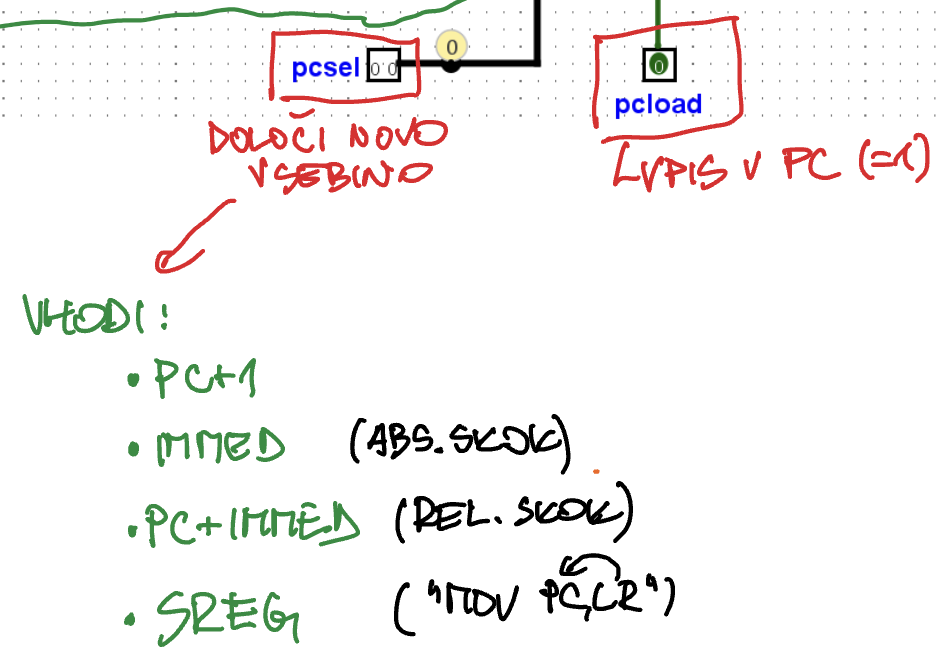 0
pcsel 0 0
0
pcload
DOLOČI NOVO
VSEBINO
VPIS V PC (=1)
VHODI:
• PC+1
• IMMED (ABS. SKOK)
• PC+IMMED (REL. SKOK)
• SREG ("MOV PC,LR")